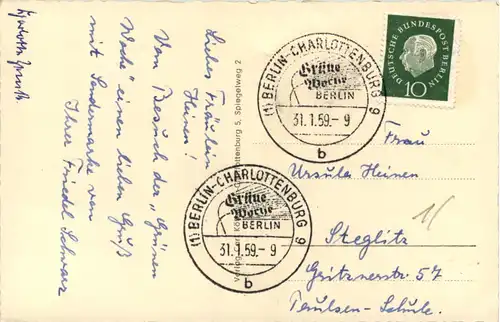 Liebes Fräulein
Heinen!
Vom Besuch der „Grünen
Woche" einen lieben Gruß
mit Sondermarke von
Ihrer Friedel Schwarz
Verlag
Charlottenburg 5, Spiegelweg 2
DEUTSCHE BUNDESPOST BERLIN
10
(1) BERLIN-CHARLOTTENBURG 9
Grüne
Woche
BERLIN
31.1.59.-9
b
(1) BERLIN-CHARLOTTENBURG 9
Grüne
Woche
BERLIN
31.1.59.-9
b
Frau
Ursula Heinen
Steglitz
Gritznerstr. 57
Paulsen-Schule.